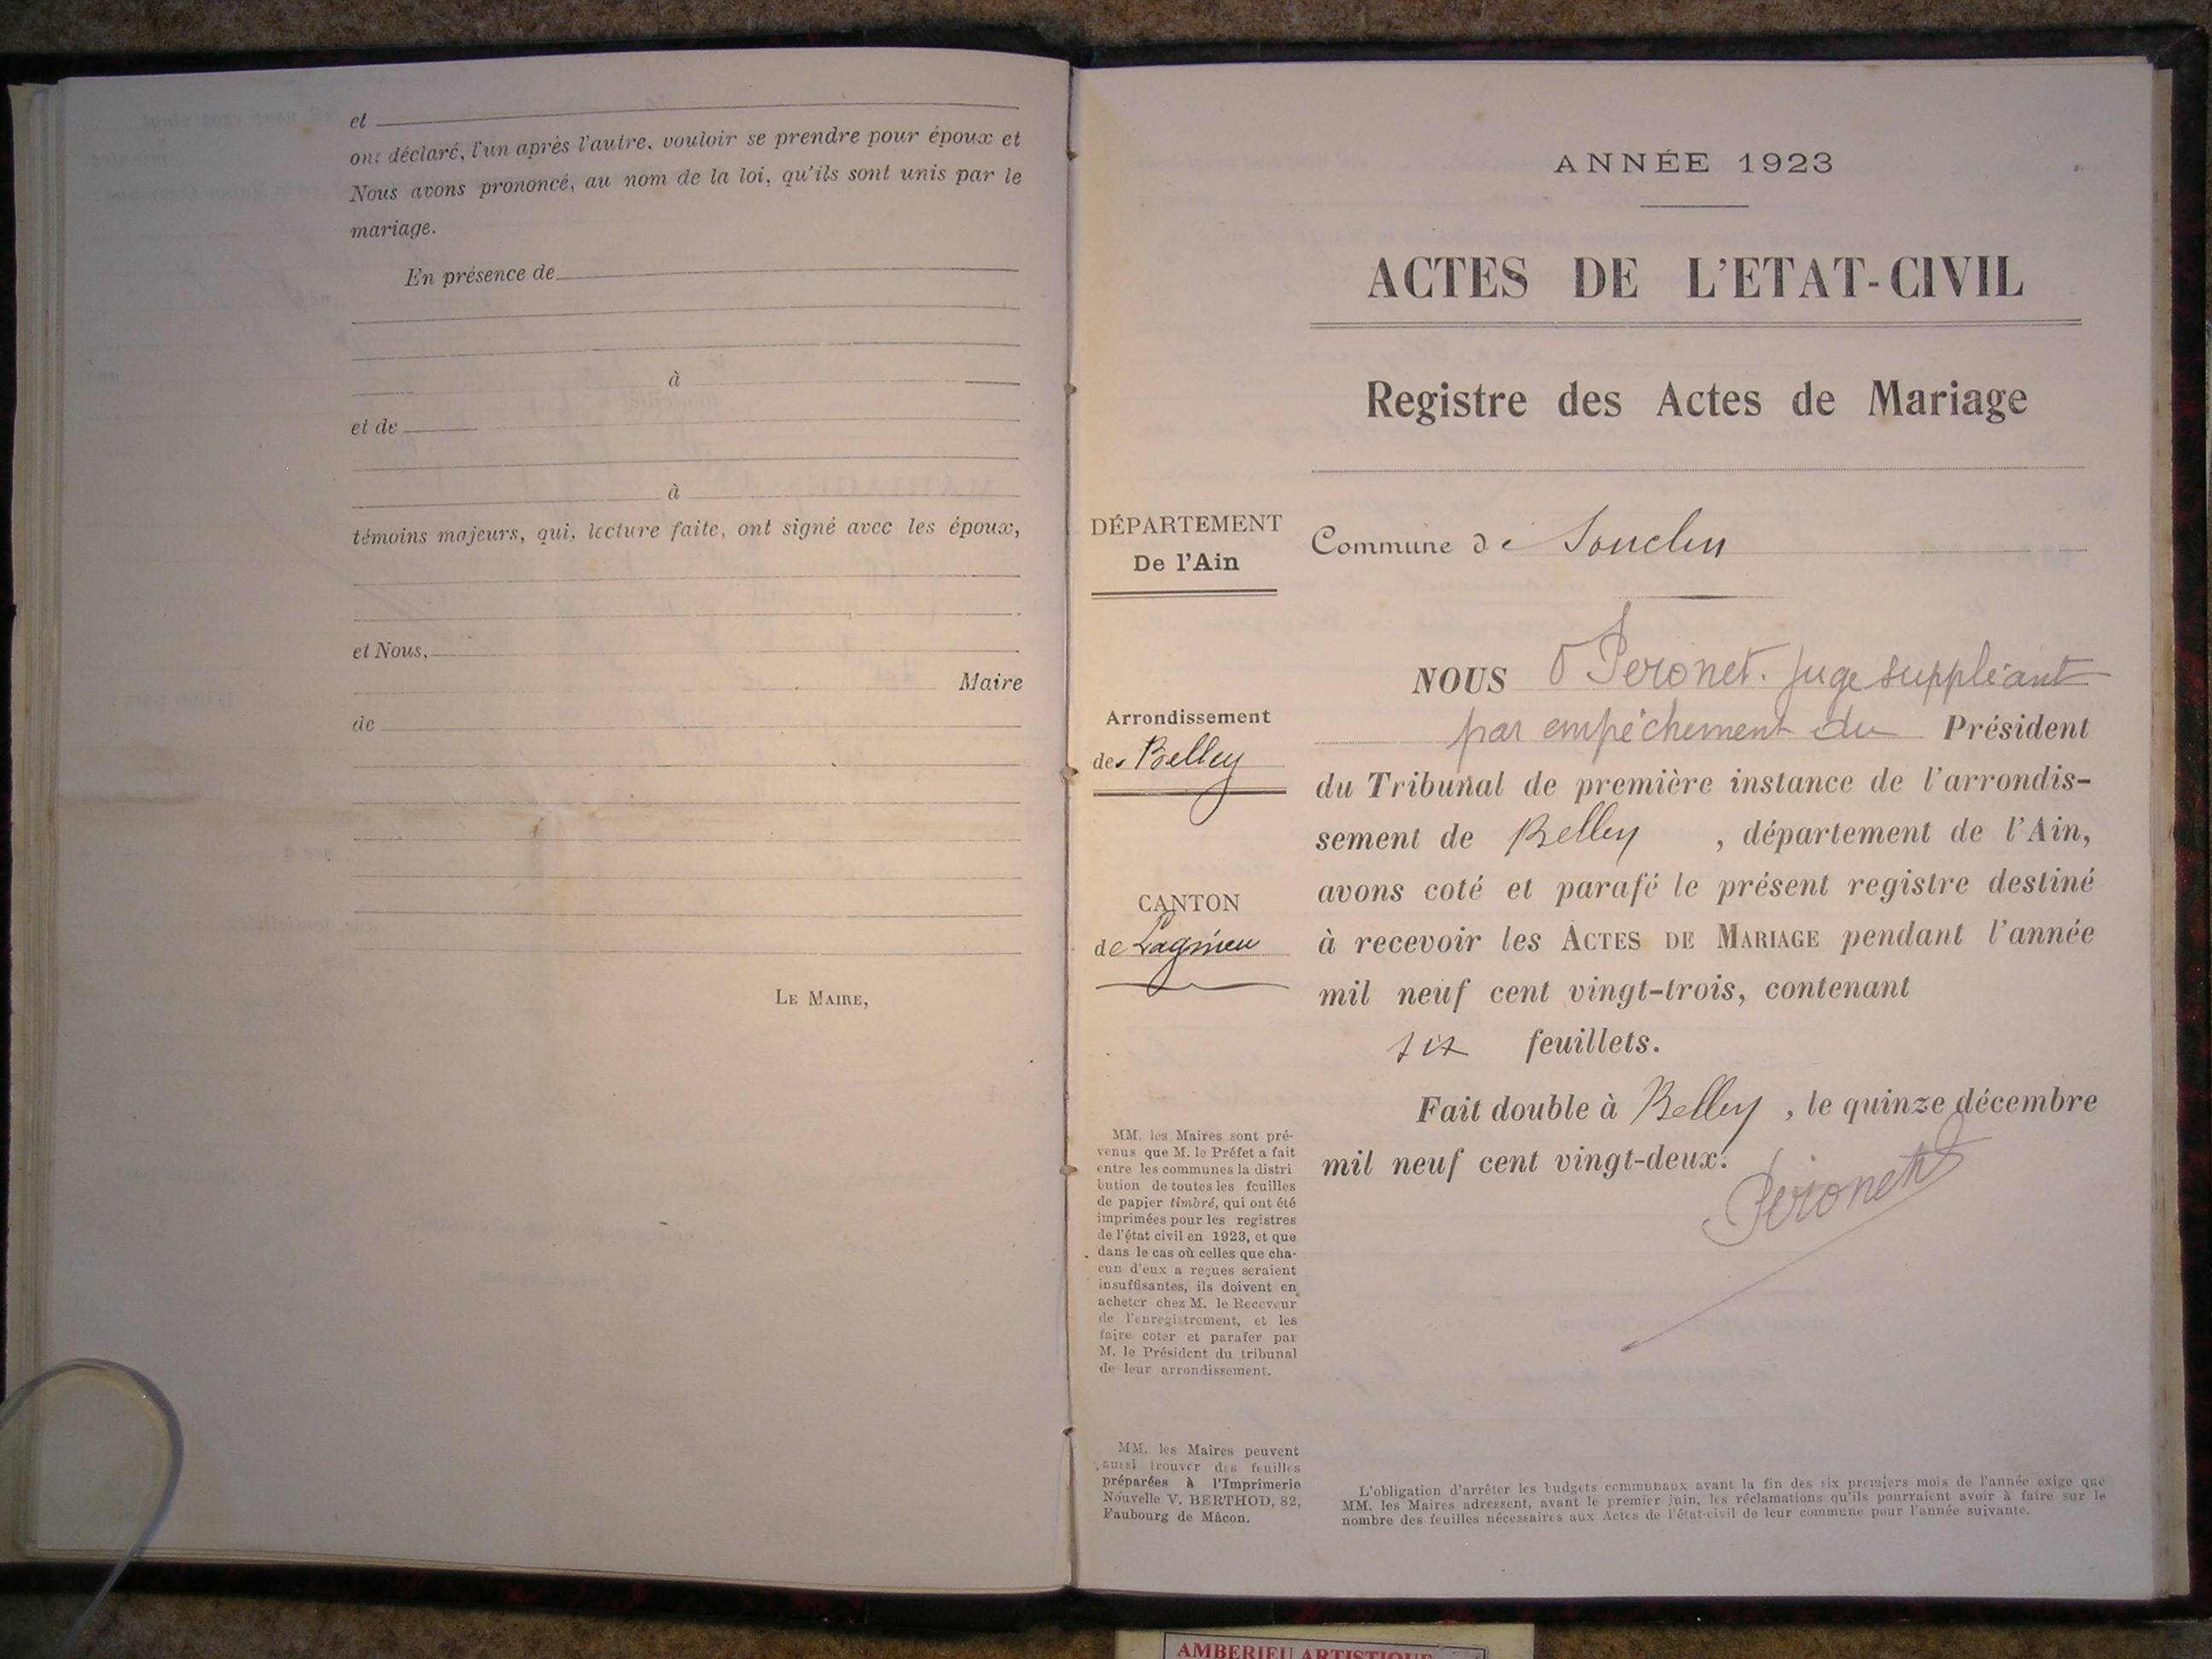 et
ont déclaré, l'un après l'autre, vouloir se prendre pour époux et
Nous avons prononcé, au nom de la loi, qu'ils sont unis par le
mariage.
En présence de
à
et de
à
témoins majeurs, qui, lecture faite, ont signé avec les époux,
et Nous,
Maire
de
LE MAIRE,
ANNÉE 1923
ACTES DE L'ETAT-CIVIL
Registre des Actes de Mariage
DÉPARTEMENT
De l'Ain
Commune de Souclin
Arrondissement
de Belley
CANTON
de Lagnieu
NOUS Peronet. Juge suppléant
par empêchement du Président
du Tribunal de première instance de l'arrondis-
sement de Belley , département de l'Ain,
avons coté et parafé le présent registre destiné
à recevoir les ACTES DE MARIAGE pendant l'année
mil neuf cent vingt-trois, contenant
six feuillets.
Fait double à Belley , le quinze décembre
mil neuf cent vingt-deux.
Péronet
MM. les Maires sont pré-
venus que M. le Préfet a fait
entre les communes la distri
bution de toutes les feuilles
de papier timbré, qui ont été
imprimées pour les registres
de l'état civil en 1923, et que
dans le cas où celles que cha-
cun d'eux a reçues seraient
insuffisantes, ils doivent en
acheter chez M. le Receveur
de l'enregistrement, et les
faire coter et parafer par
M. le Président du tribunal
de leur arrondissement.
MM. les Maires peuvent
aussi trouver des feuilles
préparées à l'Imprimerie
Nouvelle V. BERTHOD, 82,
Faubourg de Mâcon.
L'obligation d'arrêter les budgets communaux avant la fin des six premiers mois de l'année exige que
MM. les Maires adressent, avant le premier juin, les réclamations qu'ils pourraient avoir à faire sur le
nombre des feuilles nécessaires aux Actes de l'état-civil de leur commune pour l'année suivante.
AMBERIEU ARTISTIQUE